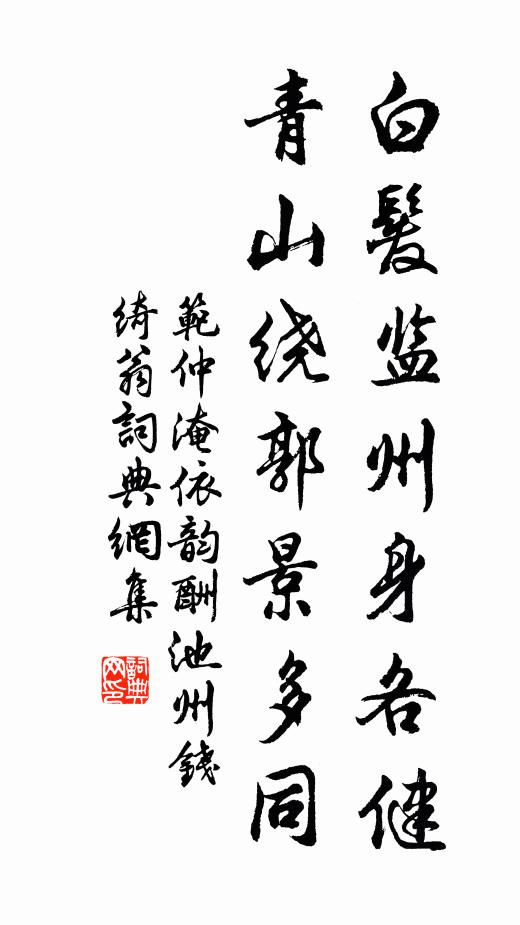 白髮监州身各健
青山绕郭景多同
範仲淹依韵酬池州錢
绮翁詞典網集
詞典
网印